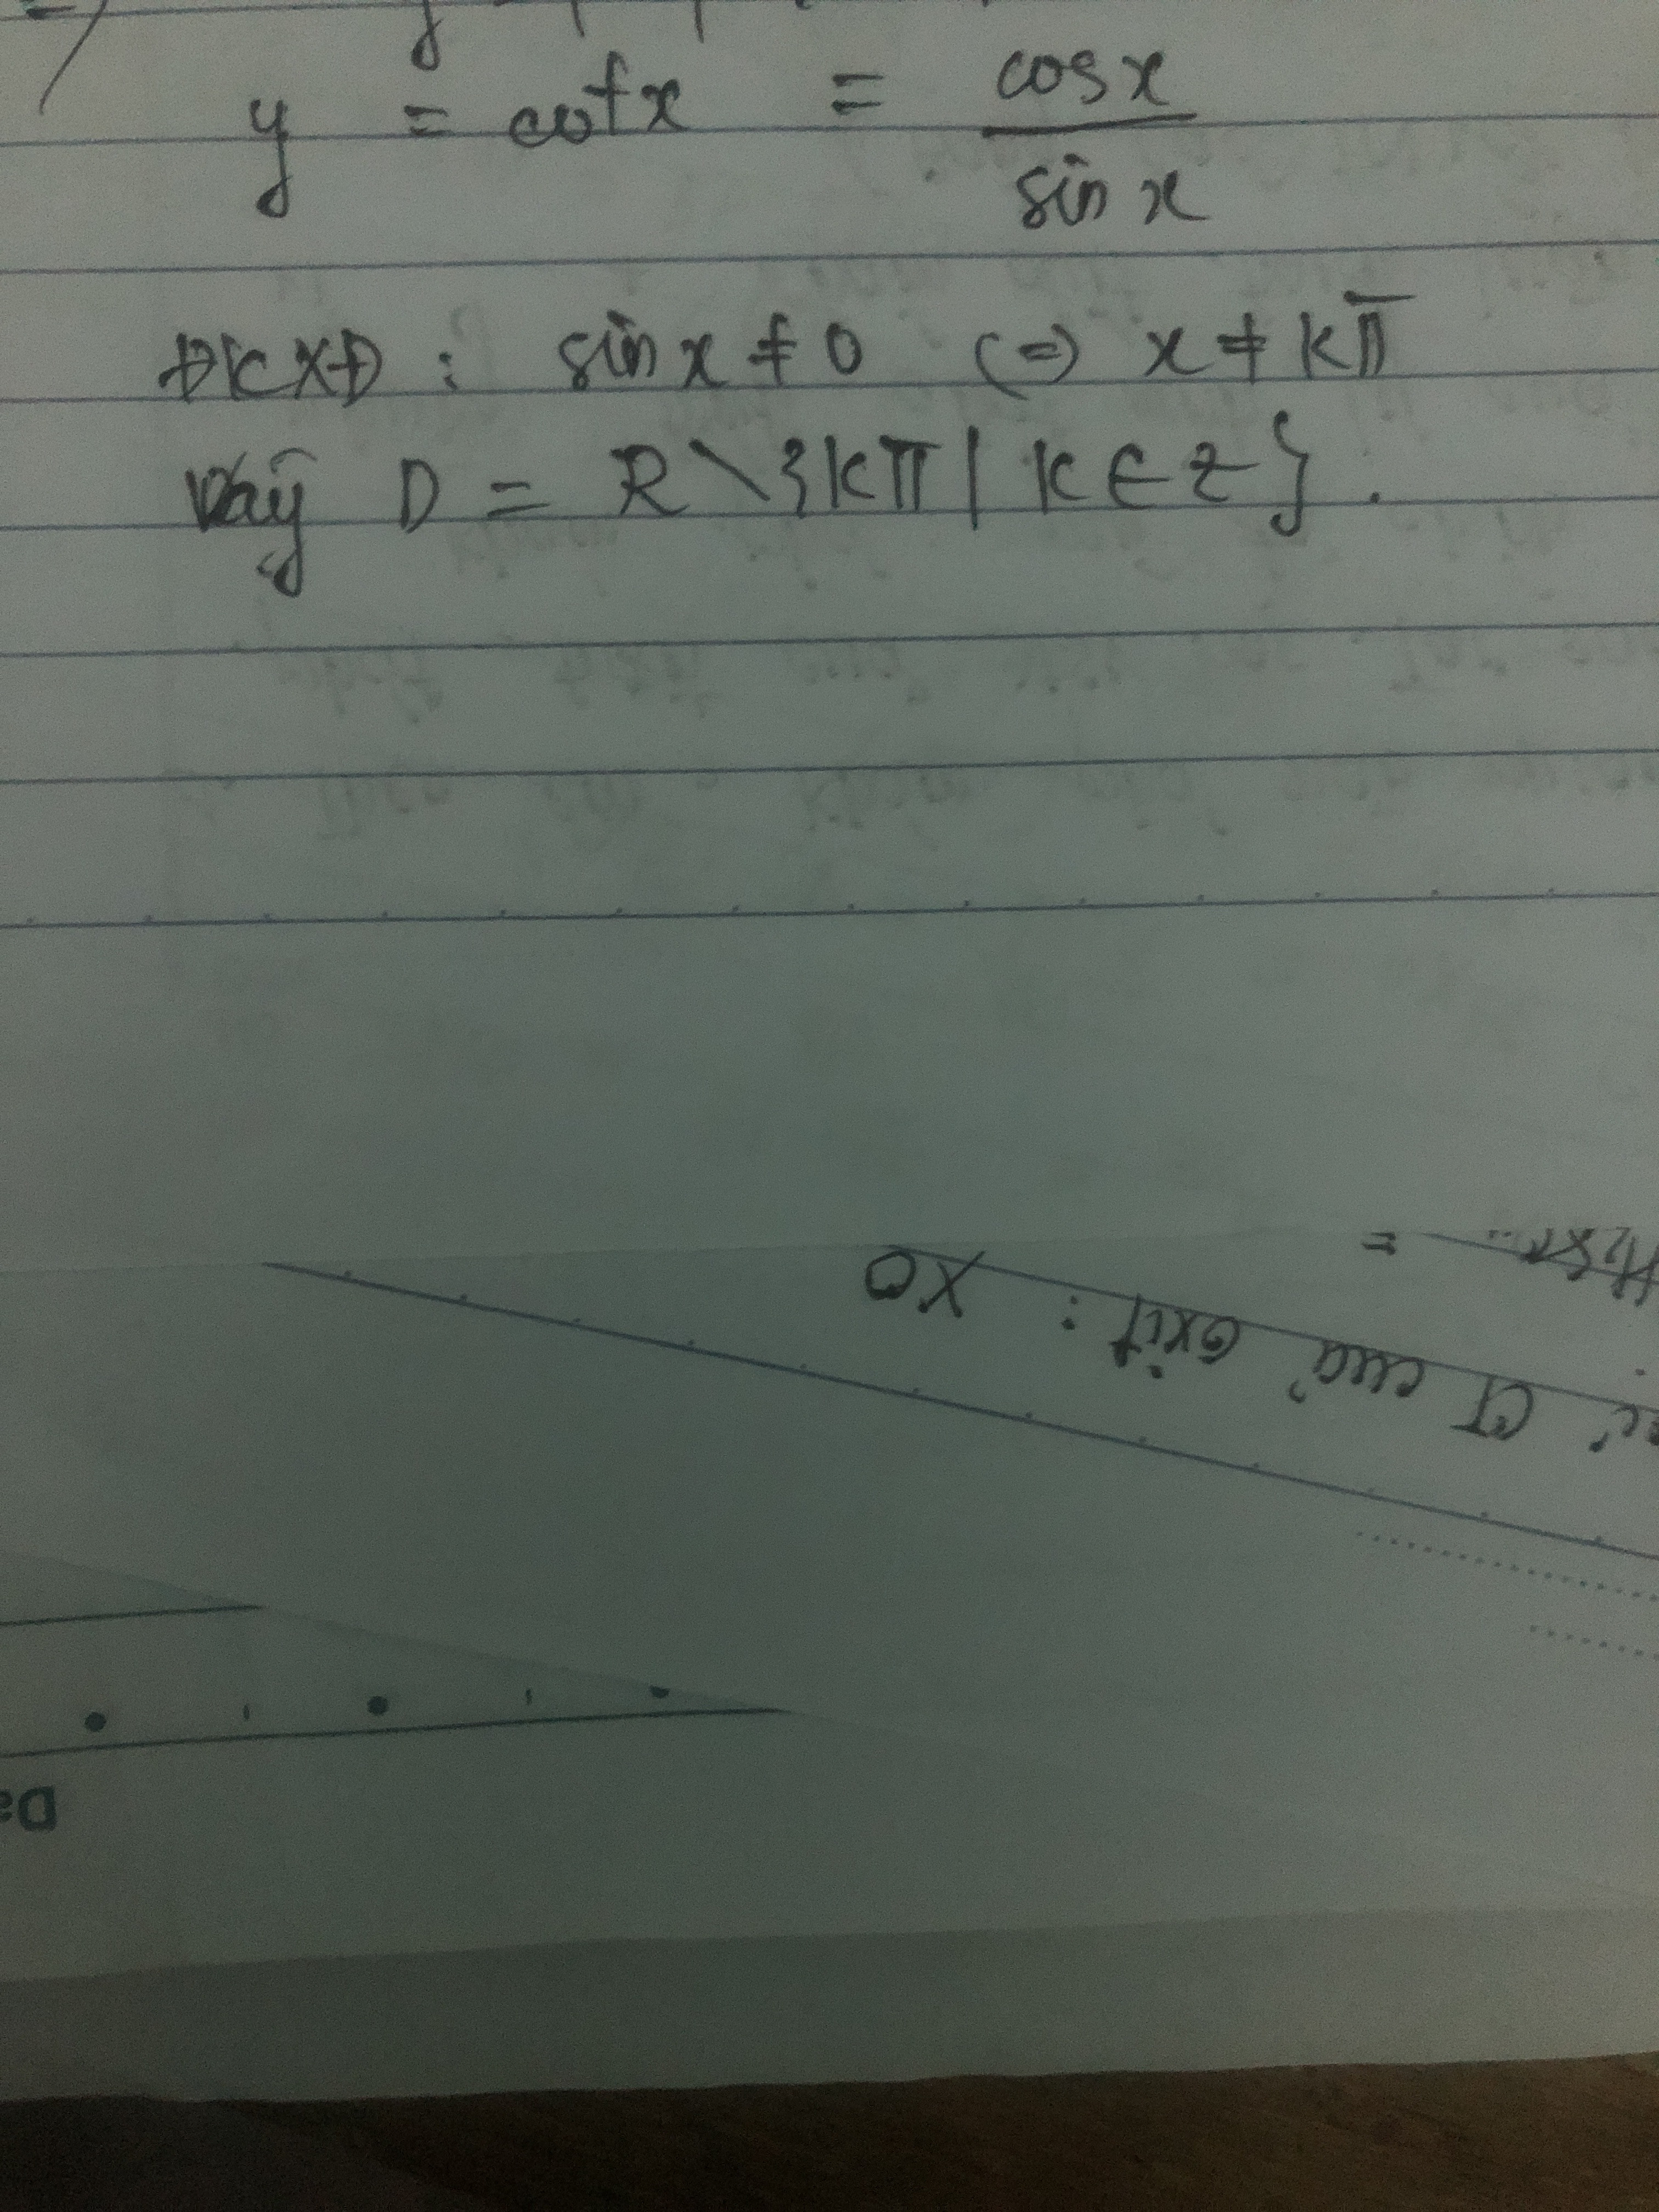 y = cotx = cosx / sin x
ĐKXĐ : sin x ≠ 0 (=) x ≠ kπ
Vậy D = R \ {kπ | k ∈ Z} .
=
CT của oxit : XO